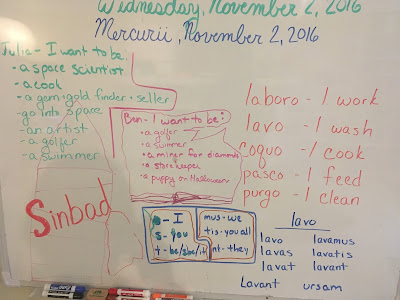 Wednesday, November 2, 2016
Mercurii, November 2, 2016
Julia - I want to be:
- a space scientist
- a cook
- a gem + gold finder + seller
- go into space
- an artist
- a golfer
- a swimmer
Ben - I want to be:
• a golfer
• a summer
• a miner for diamonds
• a storekeeper
• a puppy on Halloween
laboro - I work
lavo - I wash
coquo - I cook
pasco - I feed
purgo - I clean
Sinbad
o - I
s - you
t - he/she/it
mus - we
tis - you all
nt - they
lavo
lavo lavamus
lavas lavatis
lavat lavant
Lavant ursam